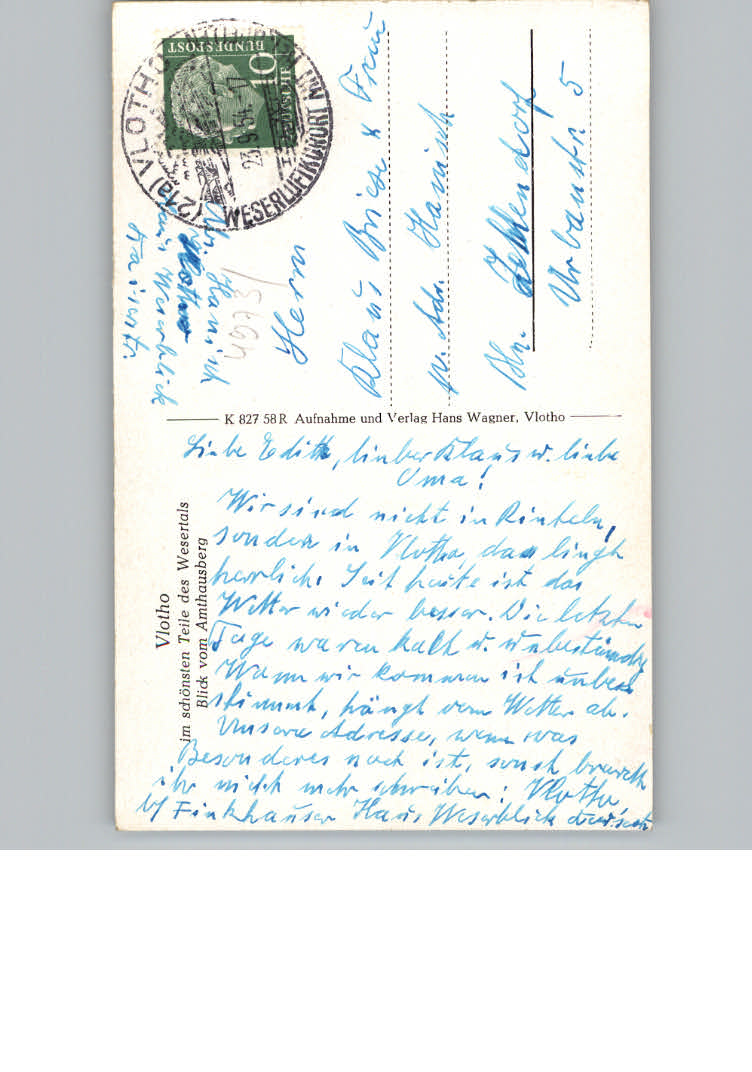 Vlotho
im schönsten Teile des Wesertals
Blick vom Amthausberg
K 827 58 R Aufnahme und Verlag Hans Wagner, Vlotho
DEUTSCHE
BUNDESPOST
10
(21a) VLOTHO
23.9.54.-17
WESERLUFTKURORT
Abs. Hanisch
Vlotho
Haus Weserblick
Herrn
Klaus Briese & Frau
p. Adr. Hanisch
Bln. Zehlendorf
Urbanstr. 5
Liebe Edith, lieber Klaus u. liebe
Oma!
Wir sind nicht in Rinteln,
sondern in Vlotho, das liegt
herrlich. Seit heute ist das
Wetter wieder besser. Die letzten
Tage waren kalt u. unbeständig
Wann wir kommen ist unbe
stimmt, hängt vom Wetter ab.
Unsere Adresse, wenn was
Besonderes noch ist, sonst braucht
ihr nicht mehr schreiben: Vlotho,
b/ Finkhäuser Haus Weserblick